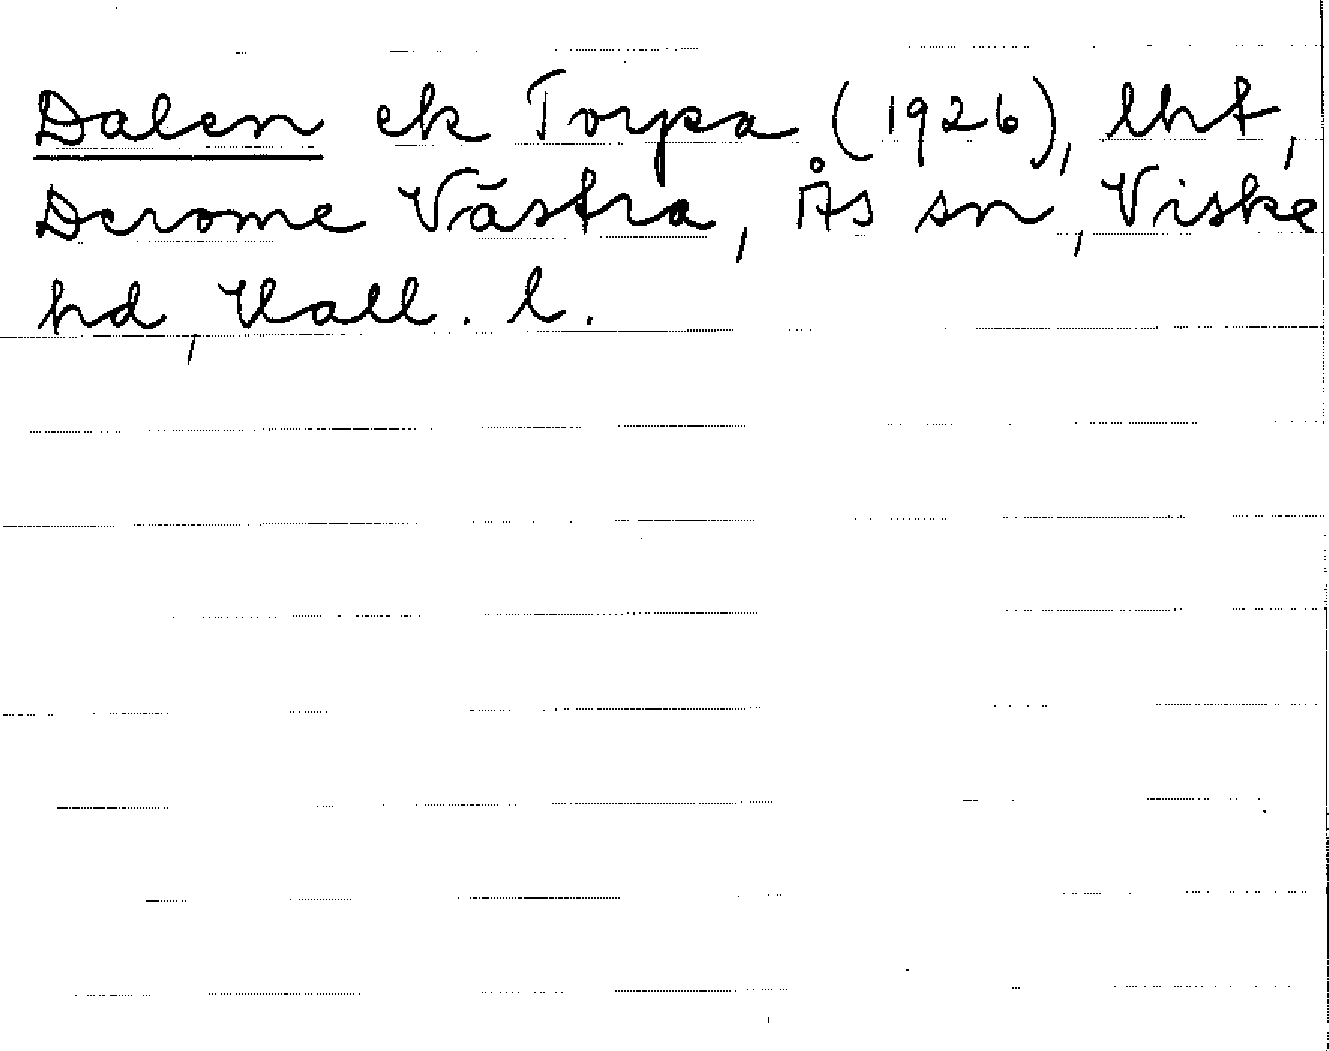 Dalen ek Torpa (1926), lht,
Derome Västra, Ås sn, Viske
hd, Hall. l.